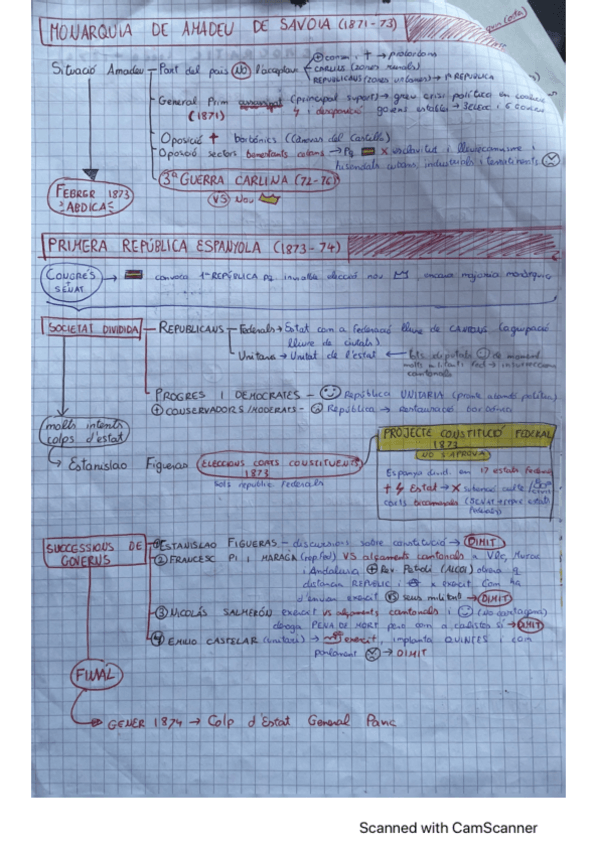 MONARQUIA DE AMADEU DE SAVOIA (1871-73)
Situació Amadeu - Part del país NO l'acceptava
CARLINS (zones rurals)
REPUBLICANS (zones urbanes) → 1ª REPÚBLICA
General Prim (principal suport) → greu crisi política en
(1871) i desaparició governs estables → 3 elecc i 6 governs
Oposició borbónics (Cánovas del Castillo)
Oposició sectors benestants cubans → Pq X esclavitud i lliurecanvisme i
hisendats cubans, industrials i terratinents
3ª GUERRA CARLINA (72-76)
VS Nou
FEBRER 1873
ABDICA
PRIMERA REPÚBLICA ESPANYOLA (1873-74)
CONGRÉS + SENAT → convoca 1ª REPÚBLICA pq inviable elecció nou, encara majoria monàrquica
SOCIETAT DIVIDIDA - REPUBLICANS - Federals → Estat com a Federació lliure de CANTONS (agrupació
lliure de ciutats)
Unitaris → Unitat de l'estat ← diputats de moment
molts militants fed → insurreccions
cantonals
PROGRES I DEMOCRATES - República UNITARIA
CONSERVADORS/MODERATS - República → Restauració borbónica
molts intents
colps d'estat
→ Estanislao Figueras (ELECCIONS CORTS CONSTITUENTS)
1873
Sols republic Federals
PROJECTE CONSTITUCIÓ FEDERAL
1873
NO S'APROVA
Espanya divid. en 17 estats federals
Estat → X
corts bicamerals (SENAT
SUCCESSIONS DE GOVERNS
① ESTANISLAO FIGUERAS - discussions sobre constitució → DIMIT
② FRANCESC PI I MARAGA (rep fed) VS alçaments cantonals a VLC, Murcia
i Andalusia ⊕ Rev Petroli (ALCOI)
distancia REPUBLIC i exercit com ha
d'enviar exercit VS seus militants → DIMIT
③ NICOLÁS SALMERÓN exercit vs alçaments cantonals i
deroga PENA DE MORT però com a DIMIT
④ EMILIO CASTELAR (unitari) → exercit, implanta QUINTES i com
→ DIMIT
FINAL
GENER 1874 → Colp d'Estat General Pavia
Scanned with CamScanner